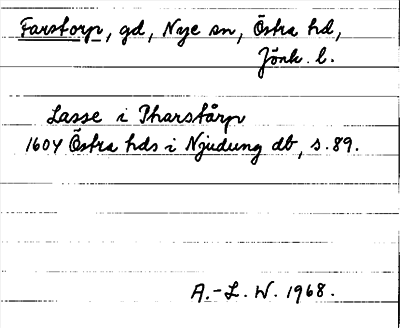 Farstorp, gd, Nye sn, Östra hd,
Jönk. l.
Lasse i Tharstårp
1604 Östra hds i Njudung db, s. 89.
A.-L. W. 1968.